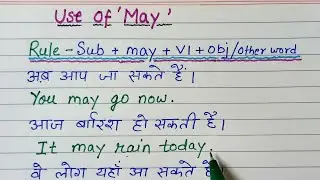 Use of 'May'
Rule - Sub + may + V1 + obj/other word
अब आप जा सकते हैं।
You may go now.
आज बारिश हो सकती है।
It may rain today.
वे लोग यहाँ आ सकते हैं